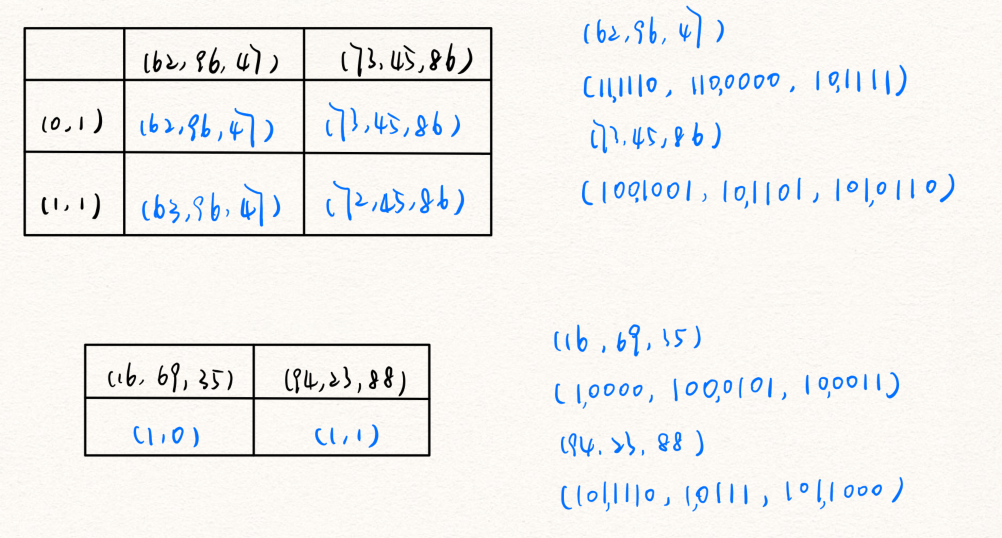 (62,96,47) (73,45,86)
(0,1) (62,96,47) (73,45,86)
(1,1) (63,96,47) (72,45,86)
(62,96,47)
(11,1110, 110,0000, 10,1111)
(73,45,86)
(100,1001, 10,1101, 101,0110)
(16, 69, 35) (94,23,88)
(1,0) (1,1)
(16, 69, 35)
(1,0000, 100,0101, 10,0011)
(94, 23, 88)
(101,1110, 1,0111, 101,1000)